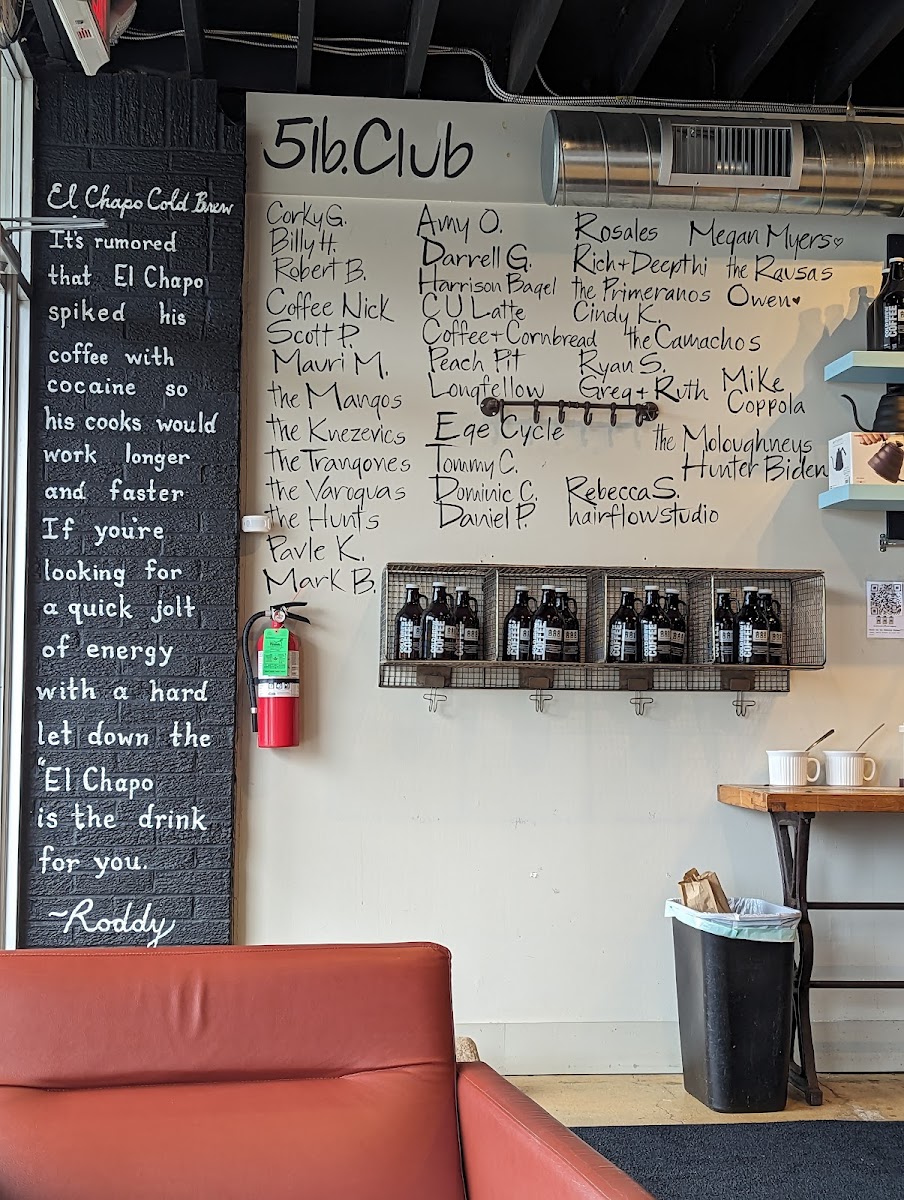 5lb.Club
El Chapo Cold Brew
It's rumored
that El Chapo
spiked his
coffee with
cocaine so
his cooks would
work longer
and faster
If you're
looking for
a quick jolt
of energy
with a hard
let down the
"El Chapo
is the drink
for you.
~Roddy
Corky G.
Billy H.
Robert B.
Coffee Nick
Scott P.
Mauri M.
the Mangos
the Knezevics
the Trangoves
the Varoquas
the Hunts
Pavle K.
Mark B.
Amy O.
Darrell G.
Harrison Bagel
CU Latte
Coffee + Cornbread
Peach Pit
Longfellow
Ege Cycle
Tommy C.
Dominic C.
Daniel P.
Rosales
Rich + Deepthi
the Primeranos
Cindy K.
the Camachos
Ryan S.
Greg + Ruth
Rebecca S.
hairflowstudio
Megan Myers♡
the Rausas
Owen♥
Mike
Coppola
the Moloughneys
Hunter Biden
COFFEE
COFFEE
COFFEE
COFFEE